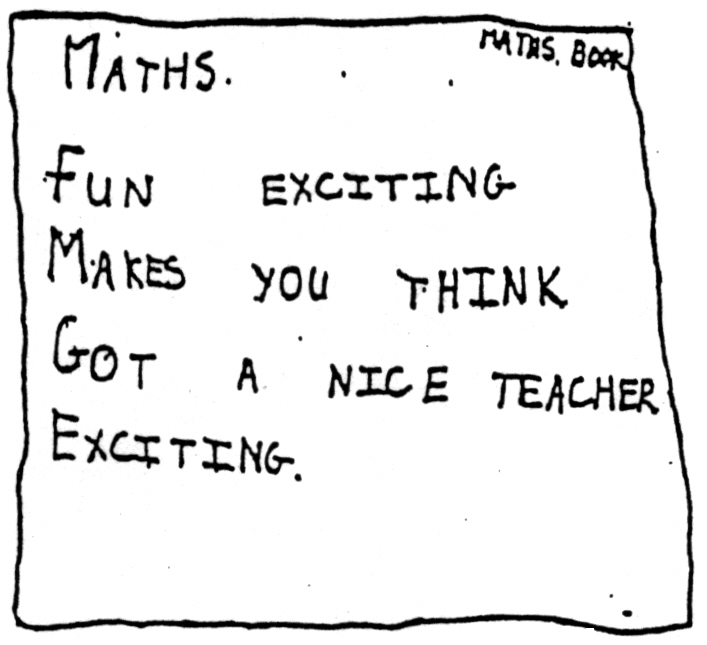 MATHS. BOOK
MATHS.
FUN EXCITING
MAKES YOU THINK
GOT A NICE TEACHER
EXCITING.